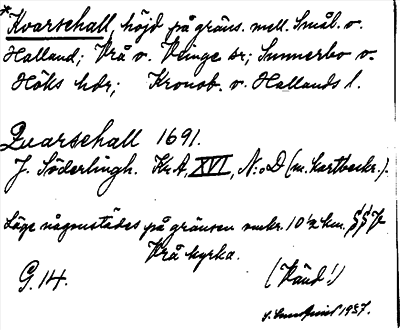 *Kvarsehall, höjd på gräns. mell. Smål. o.
Halland; Vrå o. Veinge sr; Sunnerbo o.
Höks hdr; Kronob. o. Hallands l.
Quarsehall 1691.
J. Söderlingh. Kr.A. XVI, N:o D (m. kartbeskr.).
Läge någonstädes på gränsen omkr. 10 1/2 km.
Vrå kyrka.
G. 14. (Vänd!)
1937.